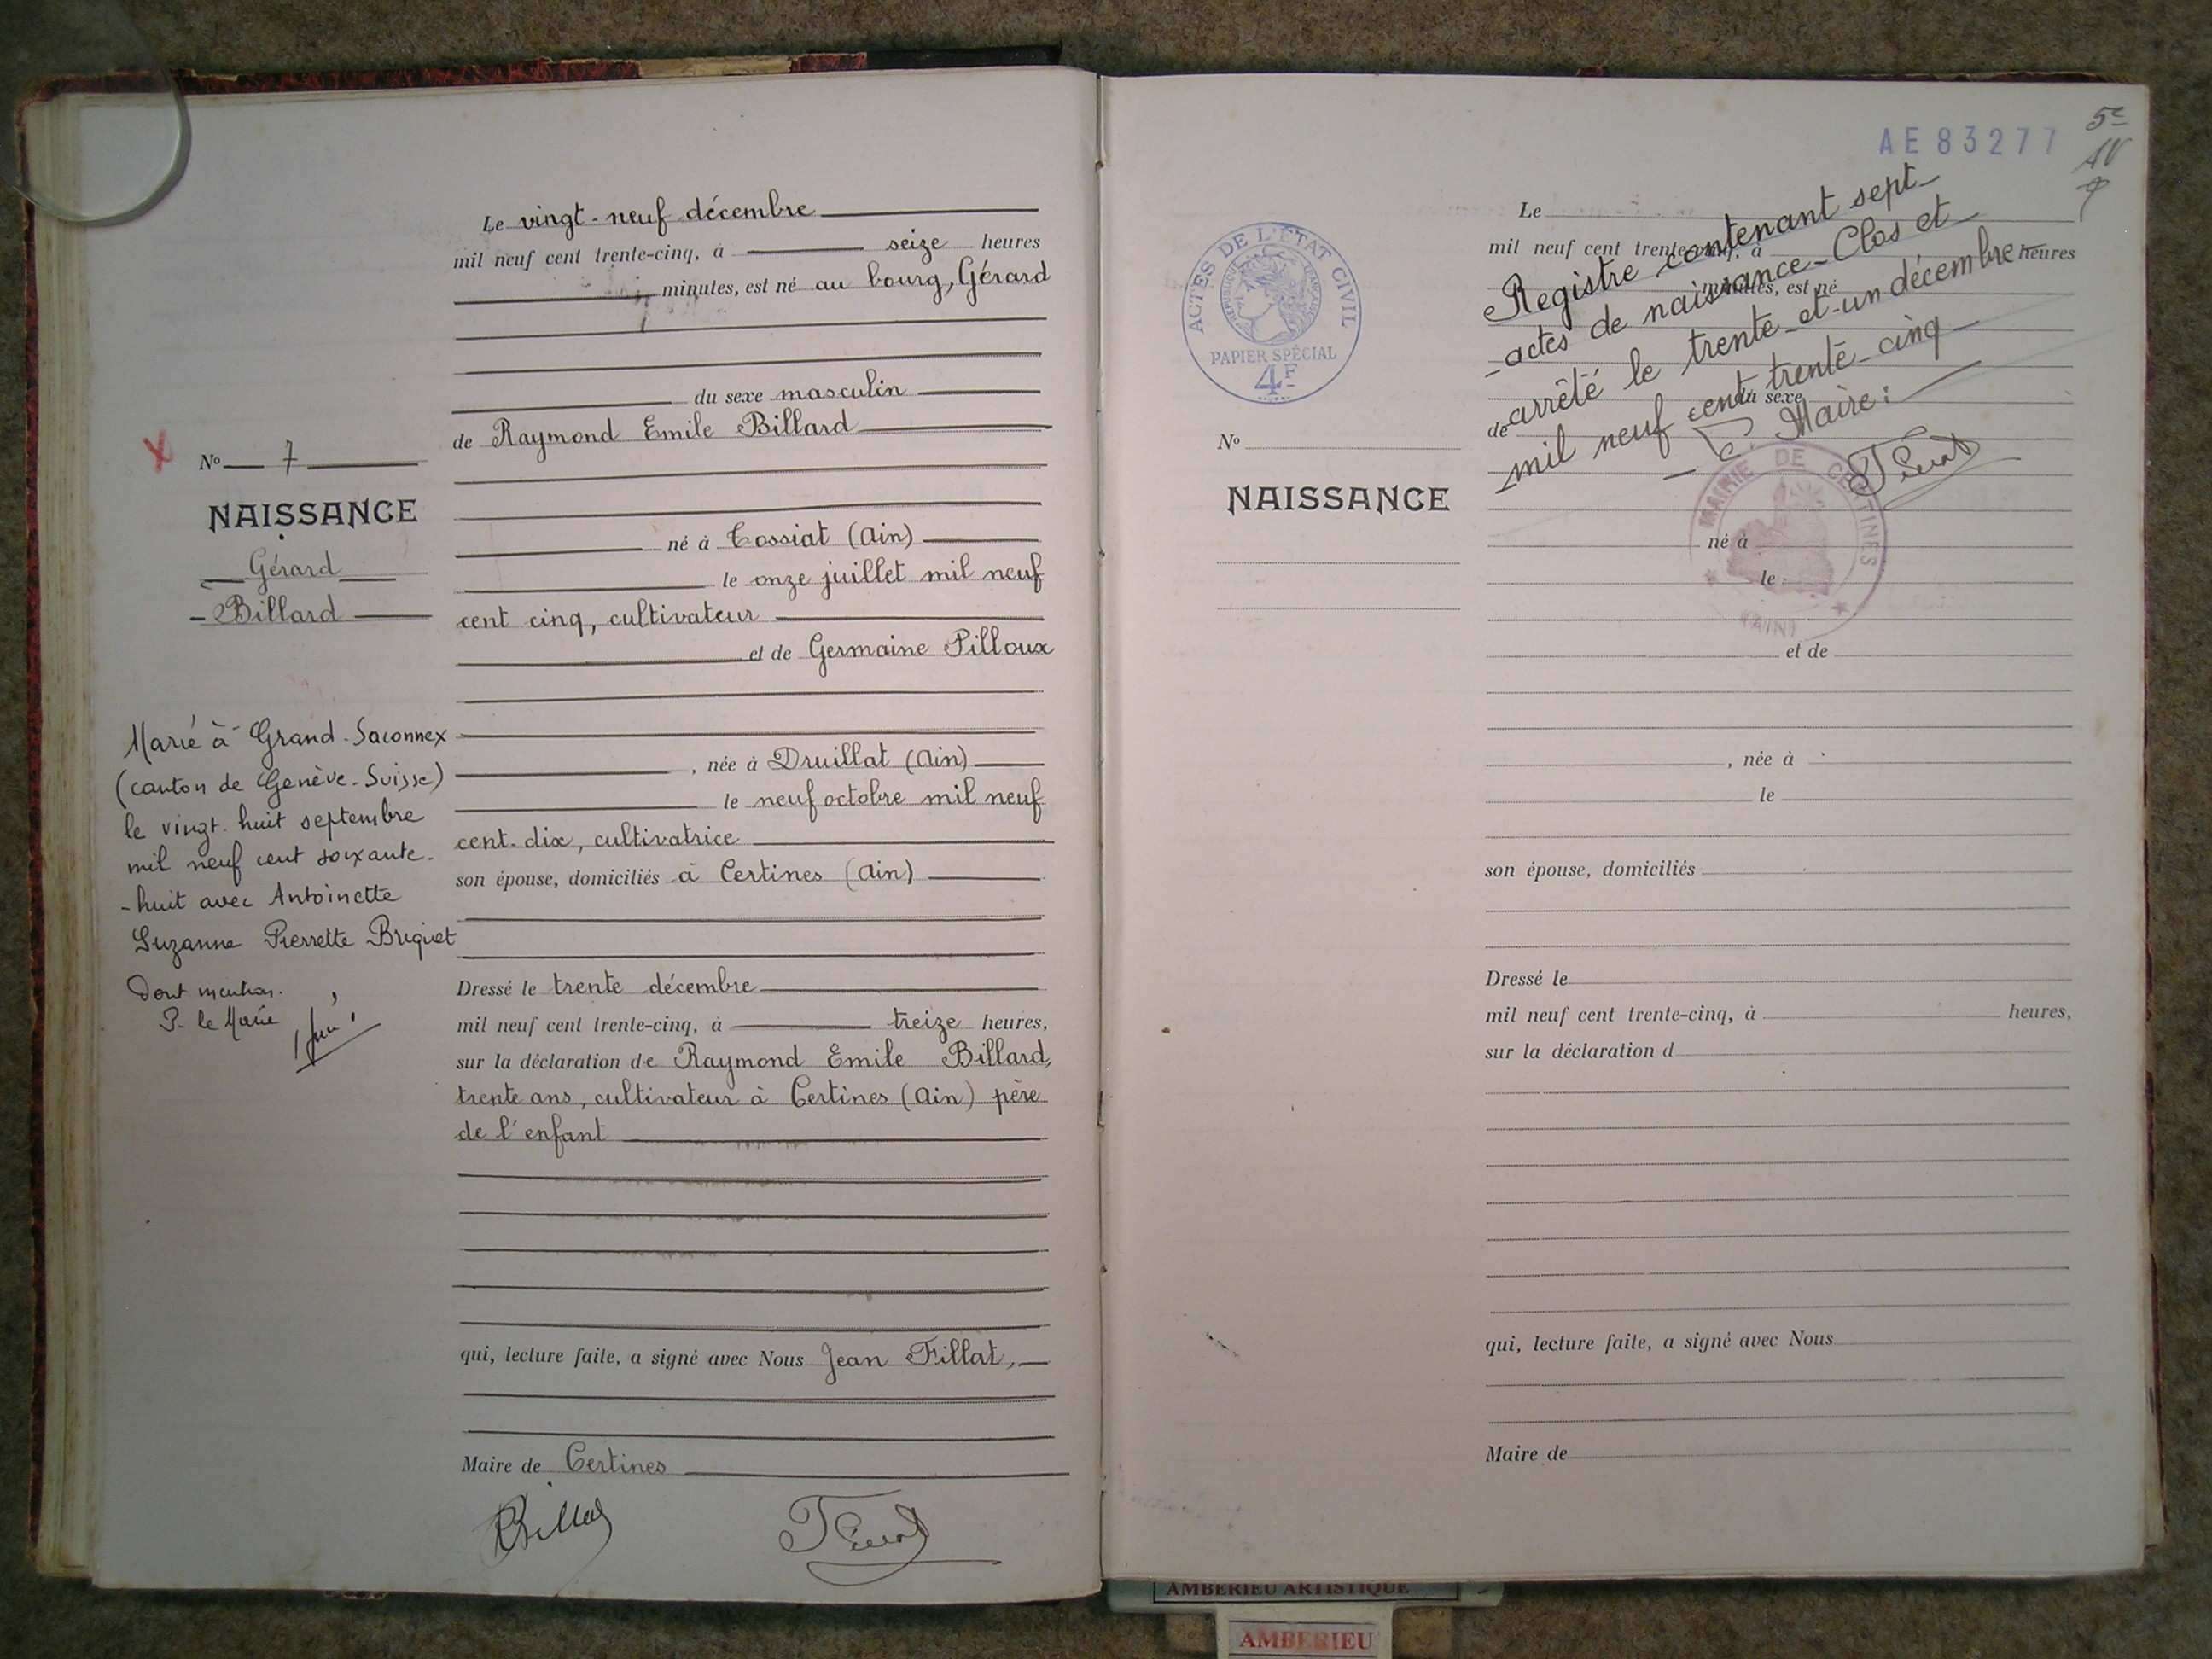 Le vingt-neuf décembre
mil neuf cent trente-cinq, à seize heures
minutes, est né au bourg, Gérard
du sexe masculin
de Raymond Emile Billard
né à Tossiat (Ain)
le onze juillet mil neuf
cent cinq, cultivateur
et de Germaine Pilloux
, née à Druillat (Ain)
le neuf octobre mil neuf
cent-dix, cultivatrice
son épouse, domiciliés à Certines (Ain)
Dressé le trente décembre
mil neuf cent trente-cinq, à treize heures,
sur la déclaration de Raymond Emile Billard,
trente ans, cultivateur à Certines (Ain) père
de l'enfant
qui, lecture faite, a signé avec Nous Jean Fillat,
Maire de Certines
X
No 7
NAISSANCE
Gérard
Billard
Marié à Grand-Saconnex
(canton de Genève-Suisse)
le vingt-huit septembre
mil neuf cent soixante-
-huit avec Antoinette
Suzanne Pierrette Briquet
Dont mention.
P. le Maire
AE 83277
5e
ACTES DE L'ÉTAT CIVIL
PAPIER SPÉCIAL
4F
Registre contenant sept
actes de naissance-Clos et
arrêté le trente-et-un décembre
mil neuf cent trente-cinq
Le Maire:
MAIRIE DE CERTINES
(AIN)
No
NAISSANCE
Le
mil neuf cent trente-cinq, à heures
minutes, est né
du sexe
de
né à
le
et de
, née à
le
son épouse, domiciliés
Dressé le
mil neuf cent trente-cinq, à heures,
sur la déclaration d
qui, lecture faite, a signé avec Nous
Maire de
AMBERIEU ARTISTIQUE
AMBERIEU